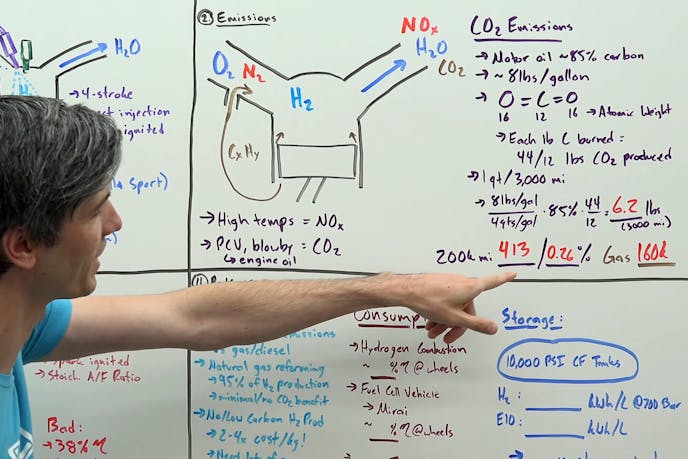 H₂O
→ 4-stroke
injection
ignited
Sport)
② Emissions
NOx
O₂
N₂
H₂O
CO₂
H₂
CxHy
→ High temps = NOx
→ PCV, blowby = CO₂
↳ engine oil
CO₂ Emissions
→ Motor oil ~85% carbon
→ ~8lbs/gallon
→ O = C = O
16 12 16 → Atomic Weight
→ Each lb C burned =
44/12 lbs CO₂ produced
→ 1 qt/3,000 mi
→ 8lbs/gal / 4qts/gal · 85% · 44/12 = 6.2 lbs
(3000 mi)
200k mi 413 / 0.26% Gas 160k
ignited
→ Stoich. A/F Ratio
Bad:
→ 38% η
emissions
vs gas/diesel
→ Natural gas reforming
→ 95% of H₂ production
→ minimal/no CO₂ benefit
→ No/Low Carbon H₂ Prod
→ 2-4x cost/kg!
→ Need lots of
→ Hydrogen Combustion
~ __% η @ wheels
→ Fuel Cell Vehicle
→ Mirai
~ __% η @ wheels
Storage:
10,000 PSI CF Tanks
H₂: ____ kWh/L @ 700 Bar
E10: ____ kWh/L